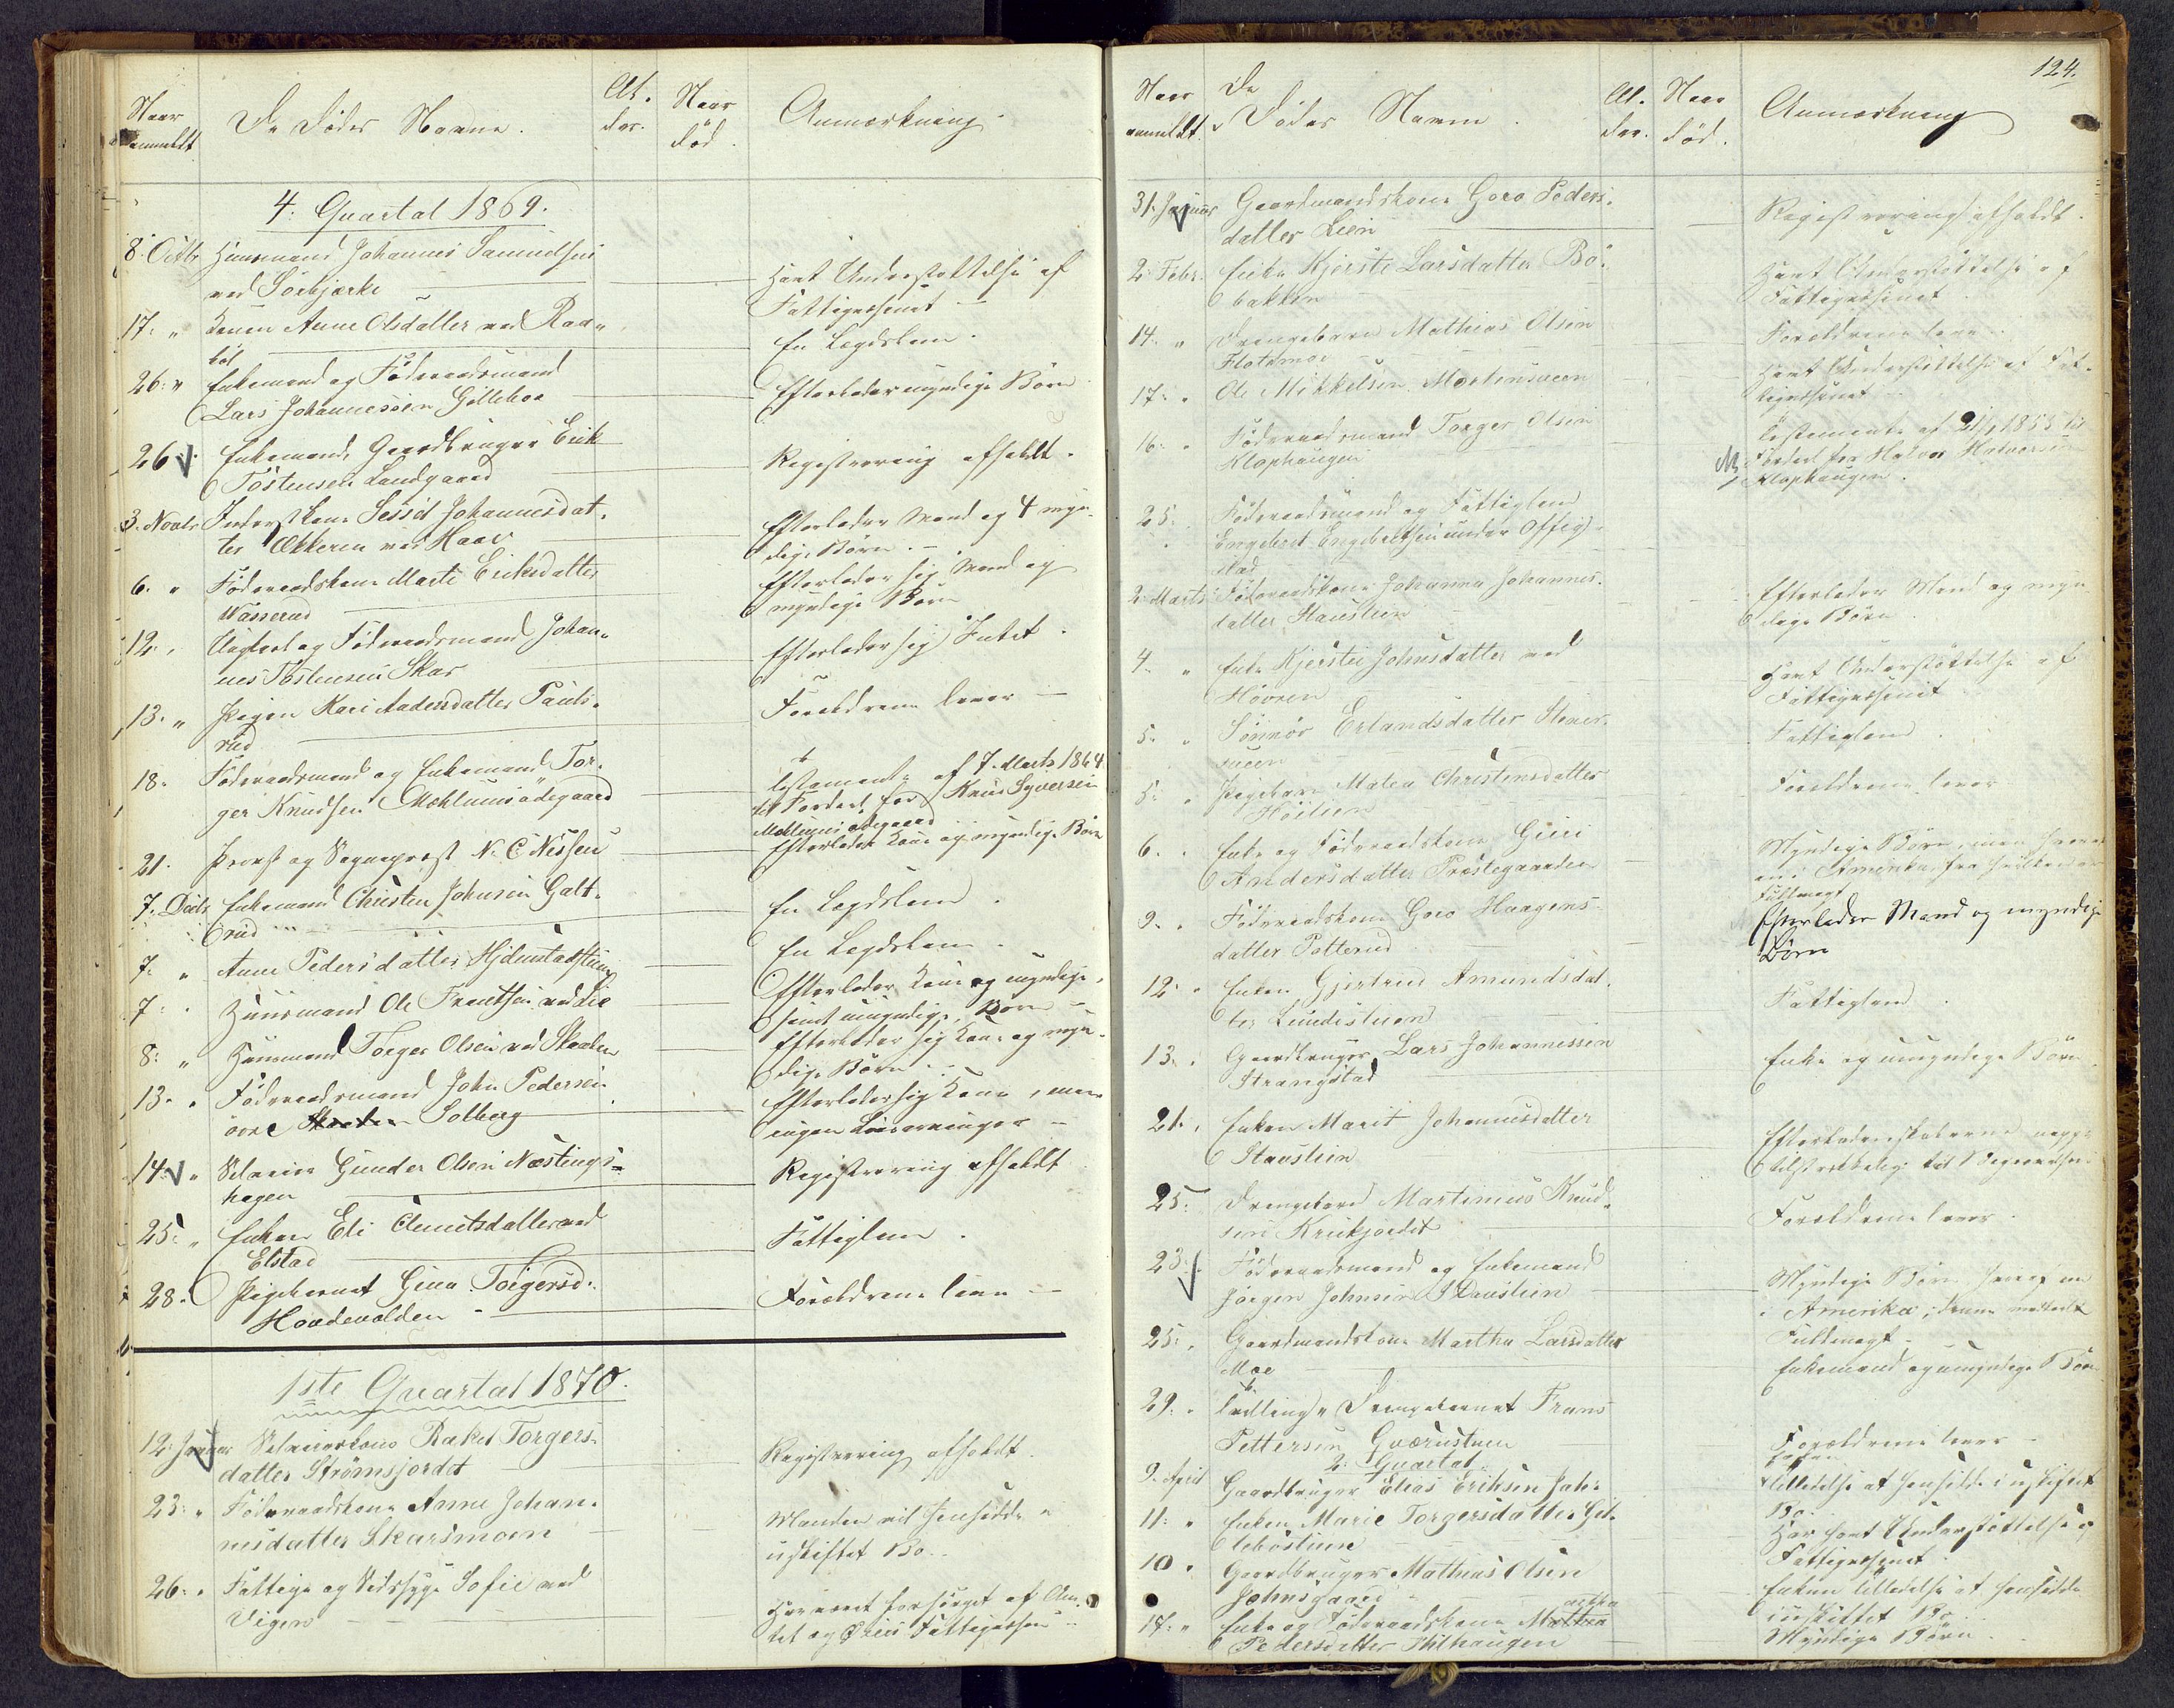 Naar
anmeldt
De Dødes Navne.
Al-
der.
Naar
død.
Anmærkning
4. Quartal 1869.
8. Octbr Huusmand Johannes Samuelsen
ved Sörbjerke
Havt Understøttelse af
Fattigvæsenet
17. " Konen Anne Olsdatter ved Raa-
böl
En Lægdslem.
26. " Enkemand og Föderaadsmand
Lars Johannessen Gilleboe
Efterlader myndige Börn
26. Enkemand, Gaardbruger Erik
Tostensen Landgaard
Registrering afholdt.
3. Novbr Inderstkone Sessel Johannesdat-
ter Ekkeren ved Haav
Efterlader Mand og 4 myn-
dige Börn.
6. " Föderaadskone Marte Eriksdatter
Wasserud
Efterlader sig Mand og
myndige Börn
12. " Ungkarl og Föderaadsmand Johan-
nes Tostensen Skar
Efterlader sig Intet.
13. " Pigen Kari Andersdatter Pauls-
rud
Forældrene lever
18. Föderaadsmand og Enkemand Tor-
ger Knudsen Mæhlumsødegaard
Testamente af 7. Marts 1864
til Fordeel for Knud Syversen
Mæhlumsødegaard
21. Provst og Sogneprest N. C. Nissen
Efterlader Kone og myndige Börn
7. Decbr Enkemand Christen Johnsen Galt-
rud
En Lægdslem.
7. " Anne Pedersdatter Hjelmstadstuen
En Lægdslem.
7. " Huusmand Ole Frantsen ved Lie
Efterlader Kone og myndige,
samt umyndige Börn
8. " Huusmand Torger Olsen ved Skaalen
Efterlader sig Kone og myn-
dige Börn
13. " Föderaadsmand John Pedersen
övre Solberg
Efterlader sig Kone, men
ingen Livsarvinger
14. " Selveier Gunder Olsen Næstings-
hagen
Registrering afholdt
25. " Enken Eli Clemetsdatter ved
Elstad
Fattiglem.
28. Pigebarnet Gina Torgersd.
Hovdevolden
Forældrene leve
1ste Quartal 1870.
12. Januar Selveierkone Rakel Torgers-
datter Strømsjordet
Registrering afholdt.
23. " Föderaadskone Anne Johan-
nesdatter Skarsmoen
Manden vil hensidde i
uskiftet Bo.
26. " Fattige og Sindssyge Sofie ved
Vigen
Har været forsørget af Am-
tet og Öiers Fattigvæsen
124.
Naar
anmeldt.
De
Dødes Navne.
Al-
der.
Naar
død.
Anmærkning
31. Januar Gaardmandskone Goro Peders-
datter Lien
Registrering afholdt.
2. Febr. Enke Kjersti Larsdatter Bö-
bakken
Havt Understøttelse af
Fattigvæsenet
14. " Drengebarn Mathias Olsen
Flatamoe
Forældrene leve
17. " Ole Mikkelsen Mortensveen
Havt Understøttelse af Fat-
tigvæsenet
16. " Föderaadsmand Torger Olsen
Klophaugen
Testamente af 1853 til
Fordeel for Halvor Halvorsen
Klophaugen.
25. Föderaadsmand og Fattiglem
Engebret Engebretsen under Offig-
stad
2. Marts Föderaadskone Johanna Johannes-
datter Stavslien
Efterlader Mand og myn-
dige Börn
4. " Enke Kjersti Johnsdatter ved
Hovren
Havt Understøttelse af
Fattigvæsenet
5. " Sönnöv Erlandsdatter Stener-
sveen
Fattiglem.
5. " Pigebarn Matea Christensdatter
Höilien
Forældrene lever
6. " Enke og Föderaadskone Guri
Andersdatter Prestegaarden
Myndige Börn, men hvoraf
en i Amerika, fra hvilken er
Fuldmagt
9. " Föderaadskone Goro Haagens-
datter Potterud
Efterlader Mand og myndige
Börn
12. " Enken Gjertrud Amundsdat-
ter Lundeslien
Fattiglem.
13. " Gaardbruger Lars Johannessen
Strangstad
Enke og umyndige Börn
21. " Enken Marit Johannesdatter
Stavslien
Efterladenskaberne neppe
tilstrækkelig til Begravelsen
25. Drengebarn Martinus Knud-
sen Krukjordet
Forældrene lever.
23. Föderaadsmand og Enkemand
Jörgen Johnsen Stavslien
Myndige Börn hvoraf en
i Amerika; denne meddelt
Fuldmagt
25. " Gaardmandskone Martha Larsdatter
Moe
Enkemand og umyndige Börn
29. " Tvilling Drengebarnet Frans
Pettersen Gværnstuen
Forældrene lever
2. Quartal
9. April Gaardbruger Elias Eriksen Jah-
Tilladelse at hensidde i uskiftet
Bo.
11. " Enken Marie Torgersdatter Gil-
leboslien
Har havt Understøttelse af
Fattigvæsenet
10 " Gaardbruger Mathias Olsen
Johnsgaard
Enken tilladelse at hensidde
i uskiftet Bo.
17. " Enke og Föderaadskone Mathea
artha
Pedersdatter Hilhaugen
Myndige Börn.